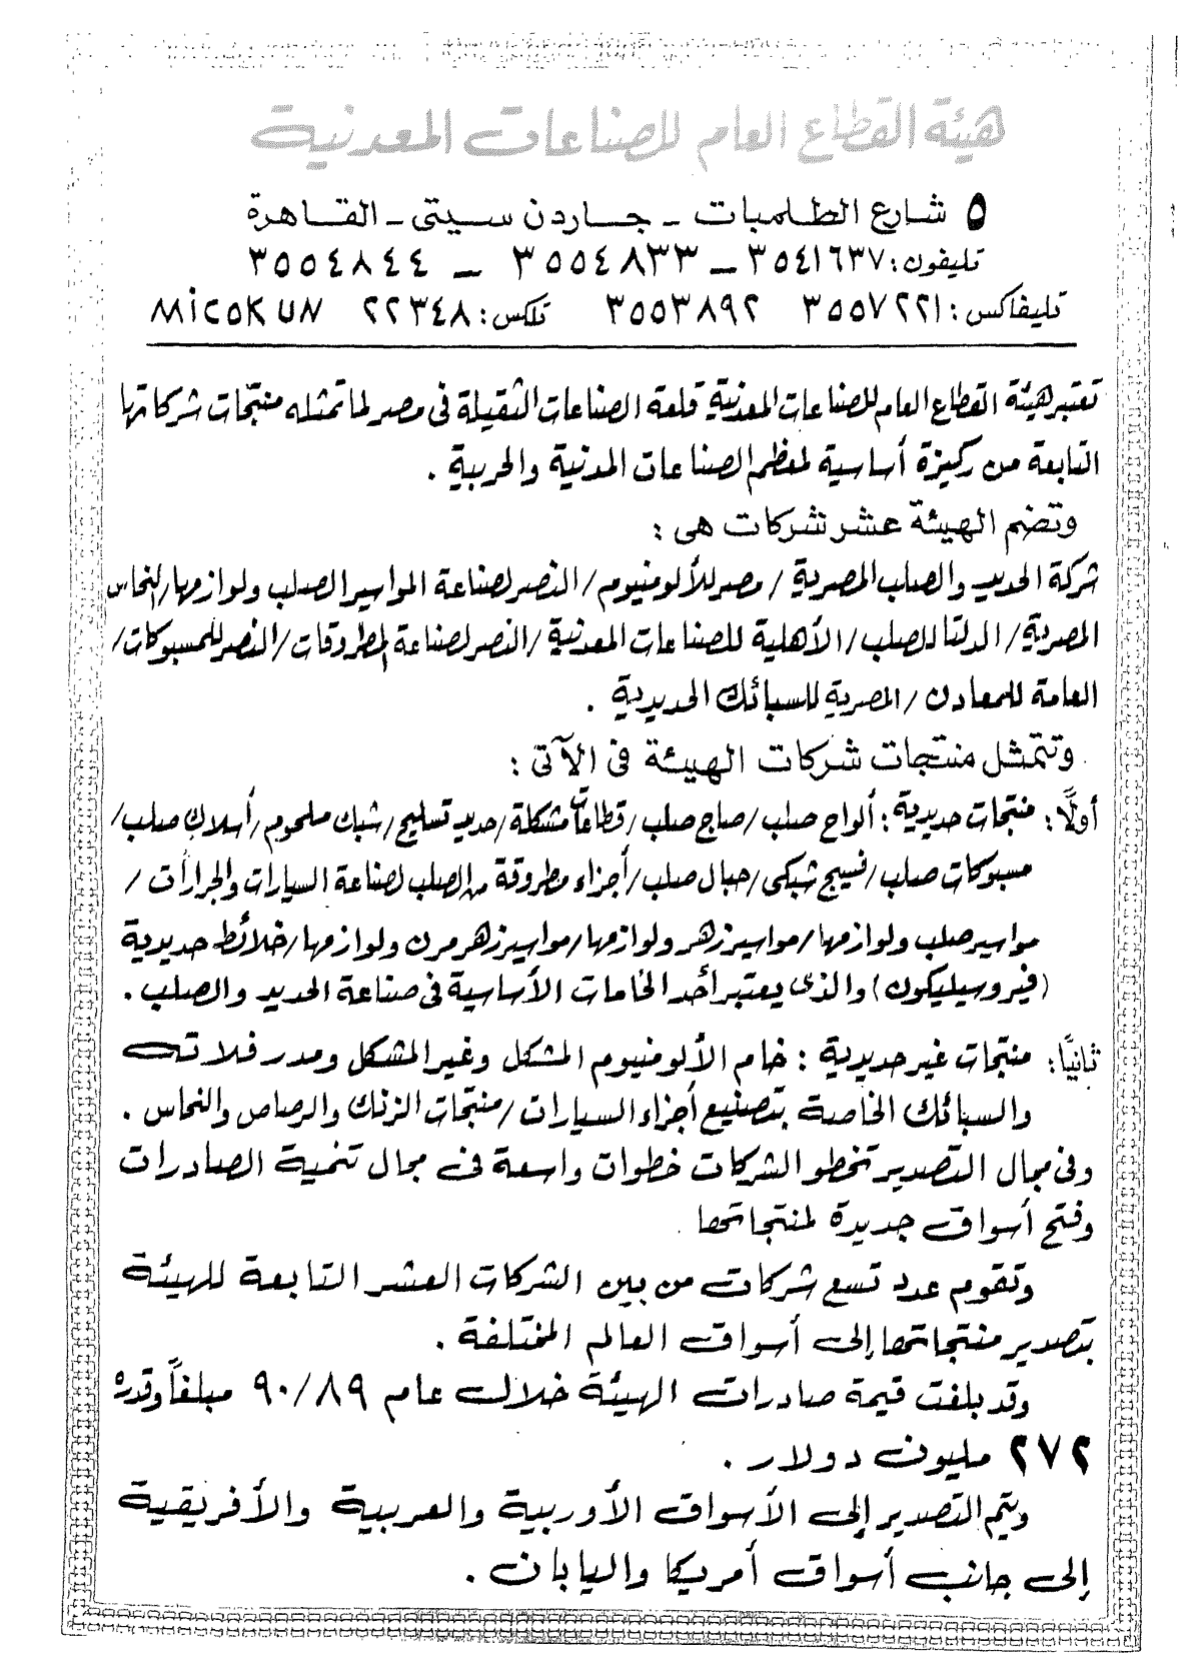 هيئة القطاع العام للصناعات المعدنية
٥ شارع الطلمبات - جاردن سيتى - القاهرة
تليفون: ٣٥٤١٦٣٧ - ٣٥٥٤٨٣٣ - ٣٥٥٤٨٤٤
تليفاكس: ٣٥٥٧٢٢١ ٣٥٥٣٨٩٢ تلكس: ٢٢٣٤٨ MICOK UN
تعتبر هيئة القطاع العام للصناعات المعدنية قلعة الصناعات الثقيلة فى مصر لما تمثله منتجات شركاتها
التابعة من ركيزة أساسية لمعظم الصناعات المدنية والحربية .
وتضم الهيئة عشر شركات هى :
شركة الحديد والصلب المصرية / مصر للألومنيوم / النصر لصناعة المواسير الصلب ولوازمها / النحاس
المصرية / الدلتا للصلب / الأهلية للصناعات المعدنية / النصر لصناعة المطروقات / النصر للمسبوكات /
العامة للمعادن / المصرية للسبائك الحديدية .
وتتمثل منتجات شركات الهيئة فى الآتى :
أولاً : منتجات حديدية : ألواح صلب / صاج صلب / قطاعات مشكلة / حديد تسليح / شبك ملحوم / أسلاك صلب /
مسبوكات صلب / نسيج شبكى / حبال صلب / أجزاء مطروقة من الصلب لصناعة السيارات والجرارات /
مواسير صلب ولوازمها / مواسير زهر ولوازمها / مواسير زهر مرن ولوازمها / خلائط حديدية
(فيروسيليكون) والذى يعتبر أحد الخامات الأساسية فى صناعة الحديد والصلب .
ثانياً : منتجات غير حديدية : خام الألومنيوم المشكل وغير المشكل ومدرفلاته
والسبائك الخاصة بتصنيع أجزاء السيارات / منتجات الزنك والرصاص والنحاس .
وفى مجال التصدير تخطو الشركات خطوات واسعة فى مجال تنمية الصادرات
وفتح أسواق جديدة لمنتجاتها .
وتقوم عدد تسع شركات من بين الشركات العشر التابعة للهيئة
بتصدير منتجاتها إلى أسواق العالم المختلفة .
وقد بلغت قيمة صادرات الهيئة خلال عام ٩٠/٨٩ مبلغاً وقدره
٢٧٢ مليون دولار .
ويتم التصدير إلى الأسواق الأوربية والعربية والأفريقية
إلى جانب أسواق أمريكا واليابان .